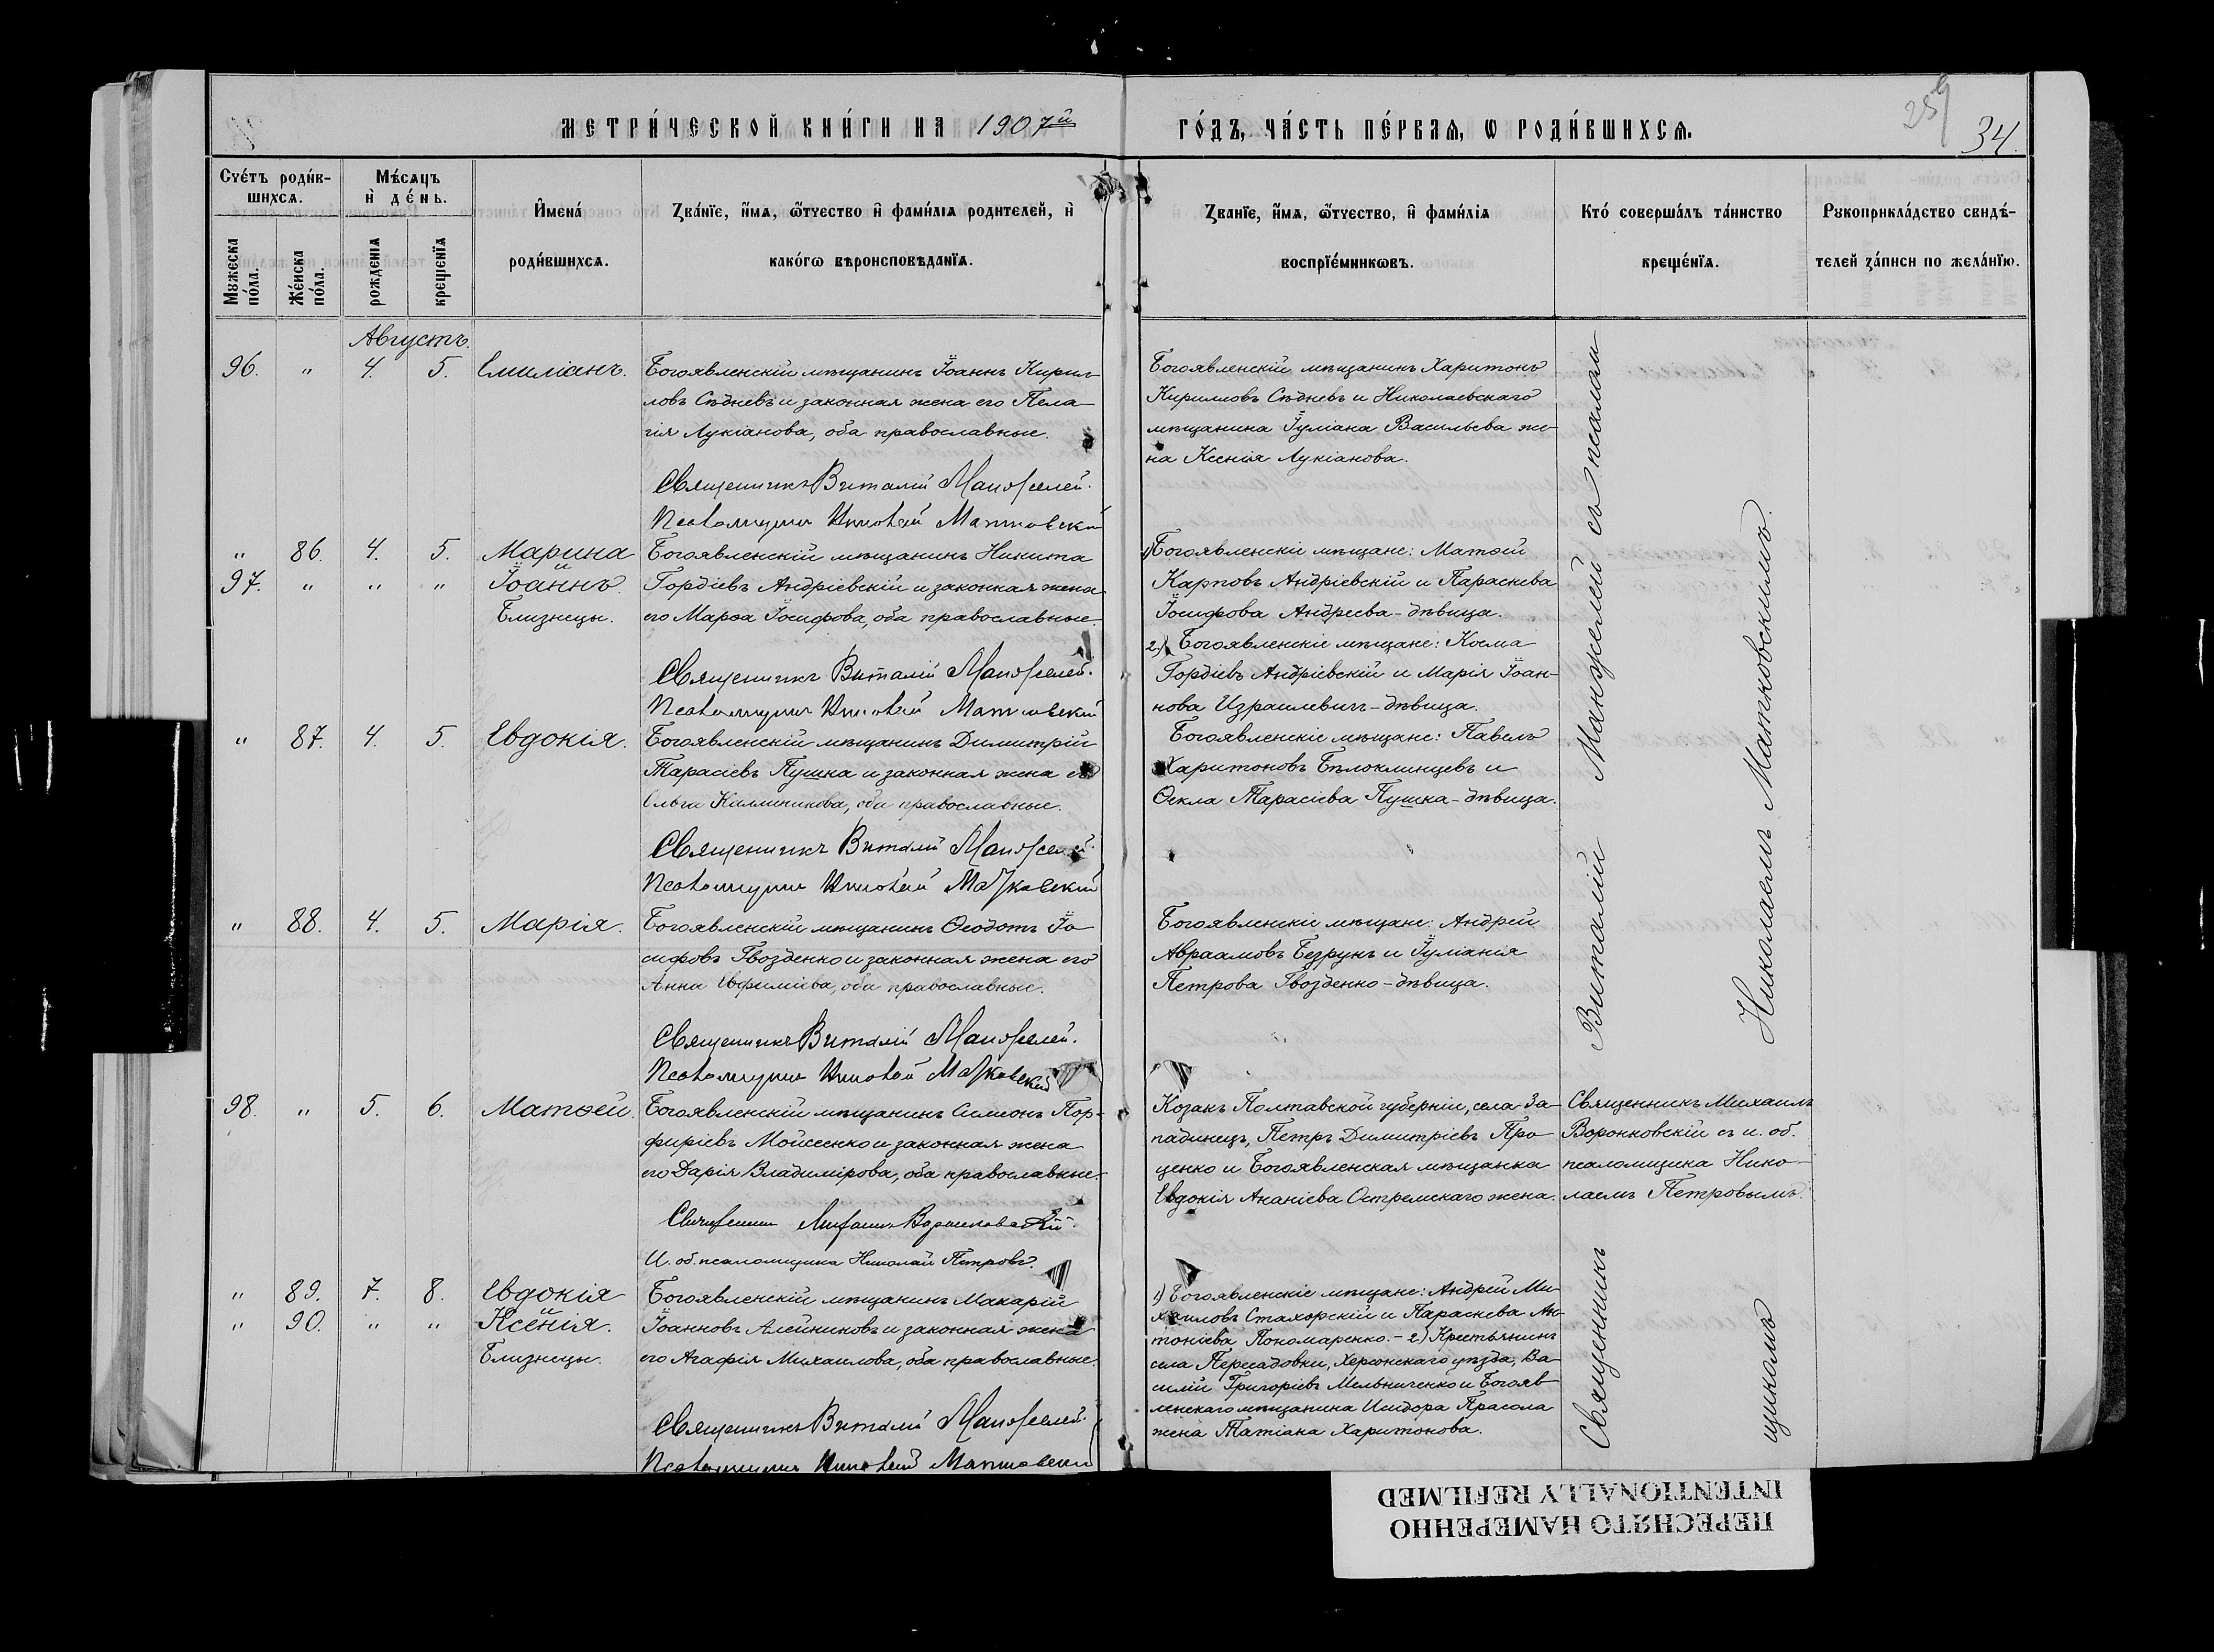 МЕТРИ́ЧЕСКОЙ КНИ́ГИ НА 1907й
ГО́ДЪ, ЧА́СТЬ ПЕ́РВАѦ, Ѡ РОДИ́ВШИХСѦ.
259
34.
Счéтъ роди́в-
шихсѧ.
Мужеска по́ла.
Же́нска по́ла.
Мѣ́сѧцъ
и҆ де́нь.
рожденіѧ
крещенїѧ
И҆мена́
роди́вшихсѧ.
Зва́нїе, и҆́мѧ, ѻ҆́тчество и҆ фами́лїѧ родителей, и҆
како́гѡ вѣроисповѣданїѧ.
Званїе, и҆́мѧ, ѻ҆́тчество, и҆ фами́лїѧ
воспрїе́мниковъ.
Кто́ соверша́лъ та́инство
креще́нїѧ.
Рукоприкла́дство свидѣ́-
телей за́писи по жела́нїю.
Августъ.
96. " 4. 5. Емиліанъ.
Богоявленскій мѣщанинъ Іоаннъ Кирил-
ловъ Сѣдневъ и законная жена его Пела-
гія Лукіанова, оба православные.
Священникъ Виталій Манжелей.
Псаломщикъ Николай Матковскій
Богоявленскій мѣщанинъ Харитонъ
Кирилловъ Сѣдневъ и Николаевскаго
мѣщанина Іуліана Васильева же-
на Ксенія Лукіанова.
" 86. 4. 5. Марина
97. " " " и Іоаннъ.
Близнецы.
Богоявленскій мѣщанинъ Никита
Гордіевъ Андріевскій и законная жена
его Марѳа Іосифова, оба православные.
Священникъ Виталій Манжелей.
Псаломщикъ Николай Матковскій
1) Богоявленскіе мѣщане: Матѳей
Карповъ Андріевскій и Параскева
Іосифова Андреева-дѣвица.
2) Богоявленскіе мѣщане: Косма
Гордіевъ Андріевскій и Марія Іоан-
нова Израилевич-дѣвица.
" 87. 4. 5. Евдокія.
Богоявленскій мѣщанинъ Димитрій
Тарасіевъ Пушка и законная жена его
Ольга Каллиникова, оба православные.
Священникъ Виталій Манжелей.
Псаломщикъ Николай Матковскій
Богоявленскіе мѣщане: Павелъ
Харитоновъ Бѣлоклинцевъ и
Ѳекла Тарасіева Пушка-дѣвица.
" 88. 4. 5. Марія.
Богоявленскій мѣщанинъ Ѳеодотъ Іо-
сифовъ Гвозденко и законная жена его
Анна Евфиміева, оба православные.
Священникъ Виталій Манжелей.
Псаломщикъ Николай Матковскій
Богоявленскіе мѣщане: Андрей
Авраамовъ Безрукъ и Іуліанія
Петрова Гвозденко-дѣвица.
98. " 5. 6. Матѳей.
Богоявленскій мѣщанинъ Симеонъ Пор-
фиріевъ Мойсеенко и законная жена
его Дарія Владимірова, оба православные.
Священникъ Михаилъ Воронковскій.
И. об. псаломщика Николай Петровъ.
Козакъ Полтавской губерніи, села За-
падинецъ, Петръ Димитріевъ Про-
ценко и Богоявленская мѣщанка
Евдокія Ананіева Остремскаго жена.
Священникъ Михаилъ
Воронковскій съ и. об.
псаломщика Нико-
лаемъ Петровымъ.
" 89. 7. 8. Евдокія
" 90. " " и Ксенія.
Близнецы.
Богоявленскій мѣщанинъ Макарій
Іоанновъ Алейниковъ и законная жена
его Агафія Михаилова, оба православные.
Священникъ Виталій Манжелей.
Псаломщикъ Николай Матковскій
1) Богоявленскіе мѣщане: Андрей Ми-
хаиловъ Стахорскій и Параскева Ан-
тоніева Пономаренко. - 2) Крестьянинъ
села Пересадовки, Херсонскаго уѣзда, Ва-
силій Григоріевъ Мельниченко и Богояв-
ленскаго мѣщанина Исидора Прасола
жена Татіана Харитонова.
Священникъ Виталій Манжелей съ псалом-
щикомъ Николаемъ Матковскимъ.
ПЕРЕСНЯТО НАМЕРЕННО
INTENTIONALLY REFILMED